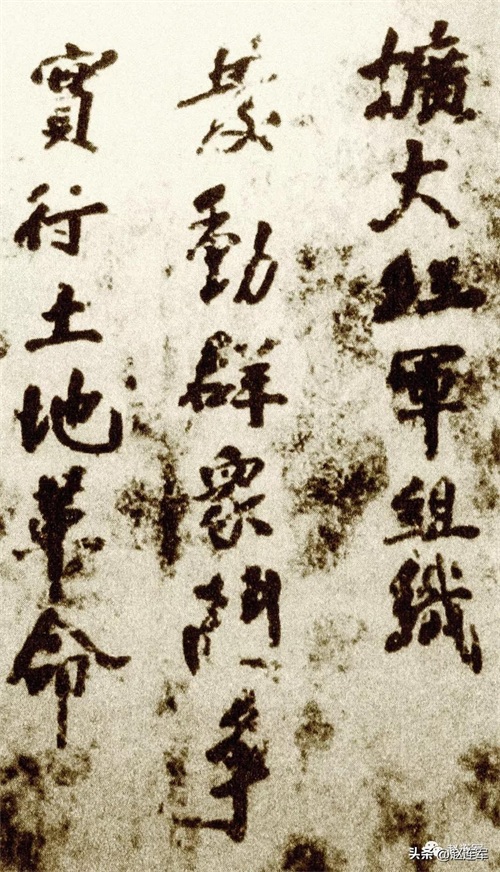 擴大紅軍組織
發動群眾鬥爭
實行土地革命
头条 @赵连军